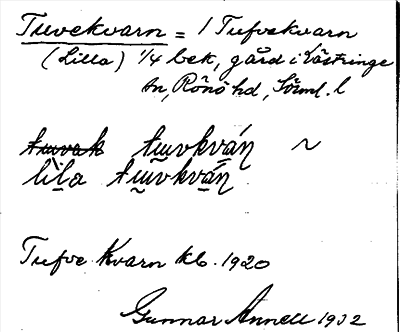 Tuvekvarn = 1 Tufvekvarn
(Lilla) 1/4 bek, gård i Västringe
sn, Rönö hd, Sörml. l
tuvak tuvkván ~
lila tuvkván
Tufve Kvarn kb. 1920
Gunnar Annell 1932